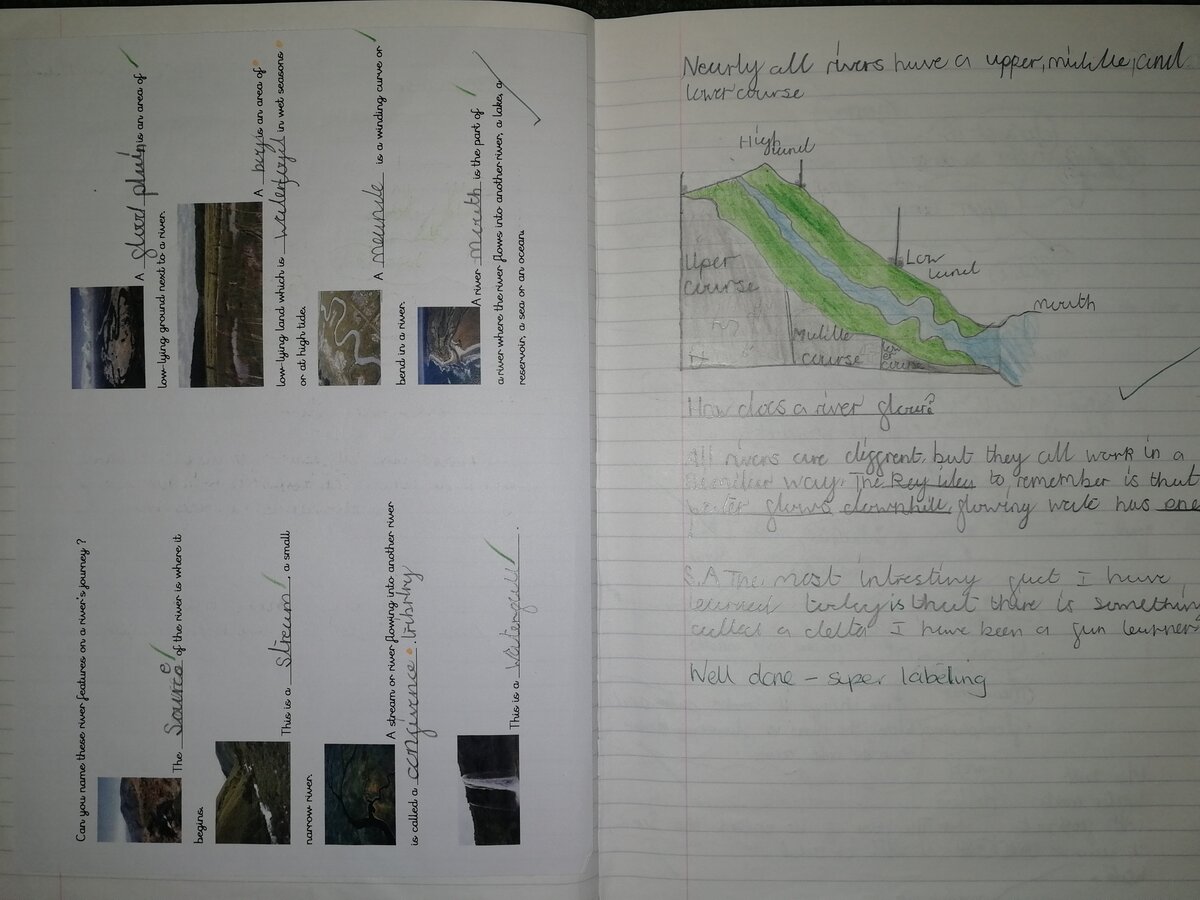 Can you name these river features on a river's journey?
The source of the river is where it
begins.
This is a stream, a small
narrow river.
A stream or river flowing into another river
is called a confirence. tributry
This is a waterfall.
A flood plain is an area of
low-lying ground next to a river.
A boy is an area of
low-lying land which is in wet seasons
or at high tide.
A meunde is a winding curve or
bend in a river.
A river mouth is the part of
a river where the river flows into another river, a lake, a
reservoir, a sea or an ocean.
Nearly all rivers have a upper, middle, and
lower course
High
land
Low
land
mouth
Uper
course
Middle
course
lower
course
How does a river flow?
All rivers are diffrent, but they all work in a
way. The Key idea to remember is that
water flows downhill, flowing has one
S.A The most intresting fact I have
learned today is that there is something
called a delta I have been a fun learner
Well done - super labeling